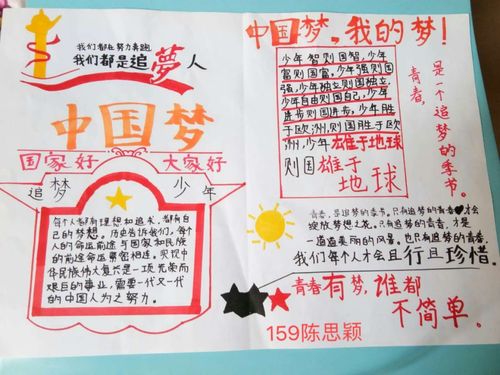 我们都在努力奔跑
我们都是追夢人
中国梦
国家好
大家好
追梦
少年
每个人都有理想和追求，都有自
己的梦想。历史告诉我们，每个
人的命运前途与国家和民族
的前途命运紧密相连。实现中
华民族伟大复兴是一项光荣而
艰巨的事业，需要一代又一代
的中国人为之努力。
中国梦，我的梦！
少年智则国智，少年
富则国富，少年强则国
强，少年独立则国独立，
少年自由则国自己，少年
进步则国进步，少年胜
于欧洲，则国胜于欧
洲，少年雄于地球
则国雄于
地球
青春，
是一个追梦的季节。
青春，是追梦的季节。只有追梦的青春才会
绽放梦想之花。只有追梦的青春，才是
一道道美丽的风景。也只有追梦的青春，
我们每个人才会且行且珍惜。
青春有梦，谁都
不简单。
159陈思颖